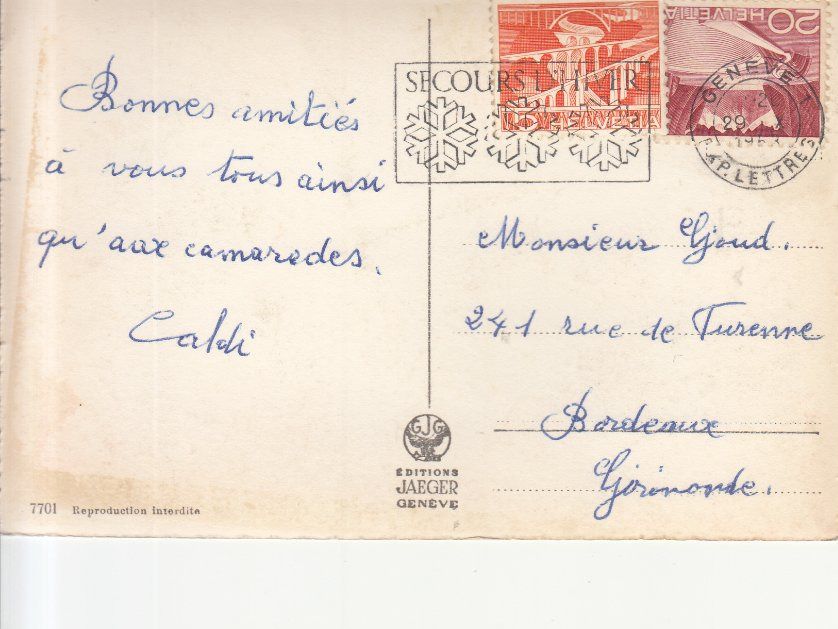 Bonnes amitiés
à vous tous ainsi
qu'aux camarades.
Caldi
SECOURS L'HIVER
HELVETIA
20 HELVETIA
GENÈVE 1
29
EXP. LETTRES
Monsieur Gjoud.
241 rue de Turenne
Bordeaux
Girironde.
GJG
ÉDITIONS
JAEGER
GENÈVE
7701 Reproduction interdite